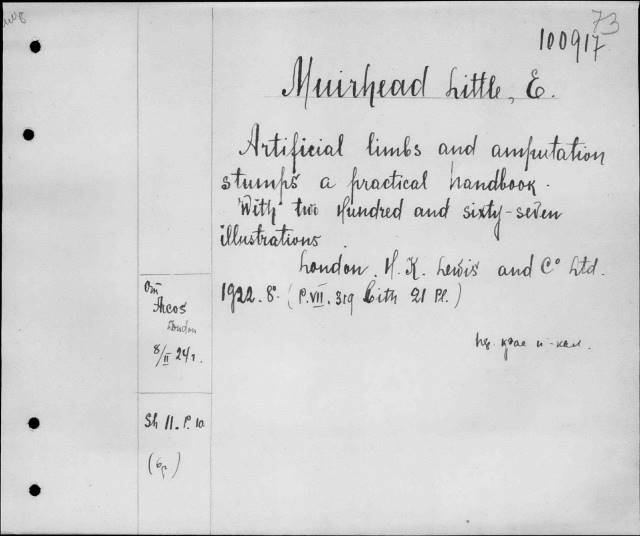 73
100917
Muirhead Little, E.
Artificial limbs and amputation
stumps a practical handbook.
With two Hundred and sixty-seven
illustrations.
London. H. K. Lewis and Cº Ltd.
1922. 8º. (P. VII. 319 With 21 Pl.)
От
Arcos
London
8/II 24 г.
Sh 11. P. 10